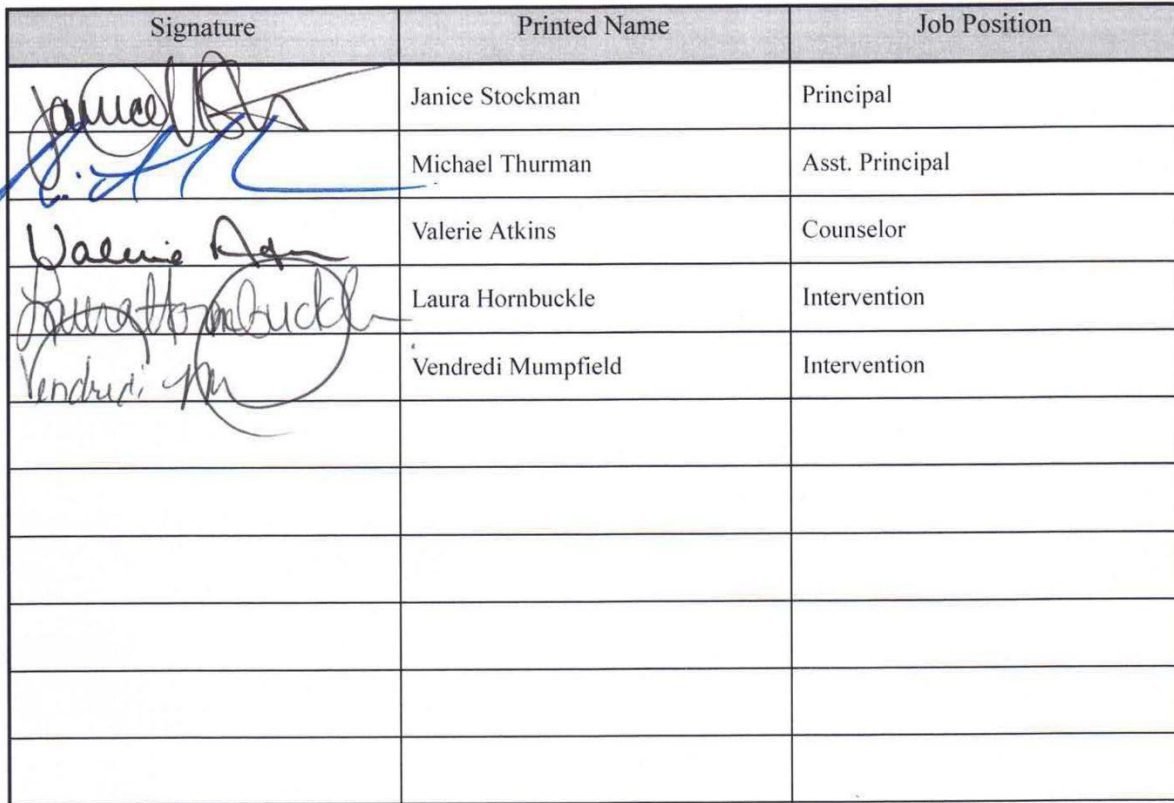 Signature Printed Name Job Position
Janice Janice Stockman Principal
Michael Thurman Asst. Principal
Valerie Valerie Atkins Counselor
Laura Hornbuckle Laura Hornbuckle Intervention
Vendredi Vendredi Mumpfield Intervention